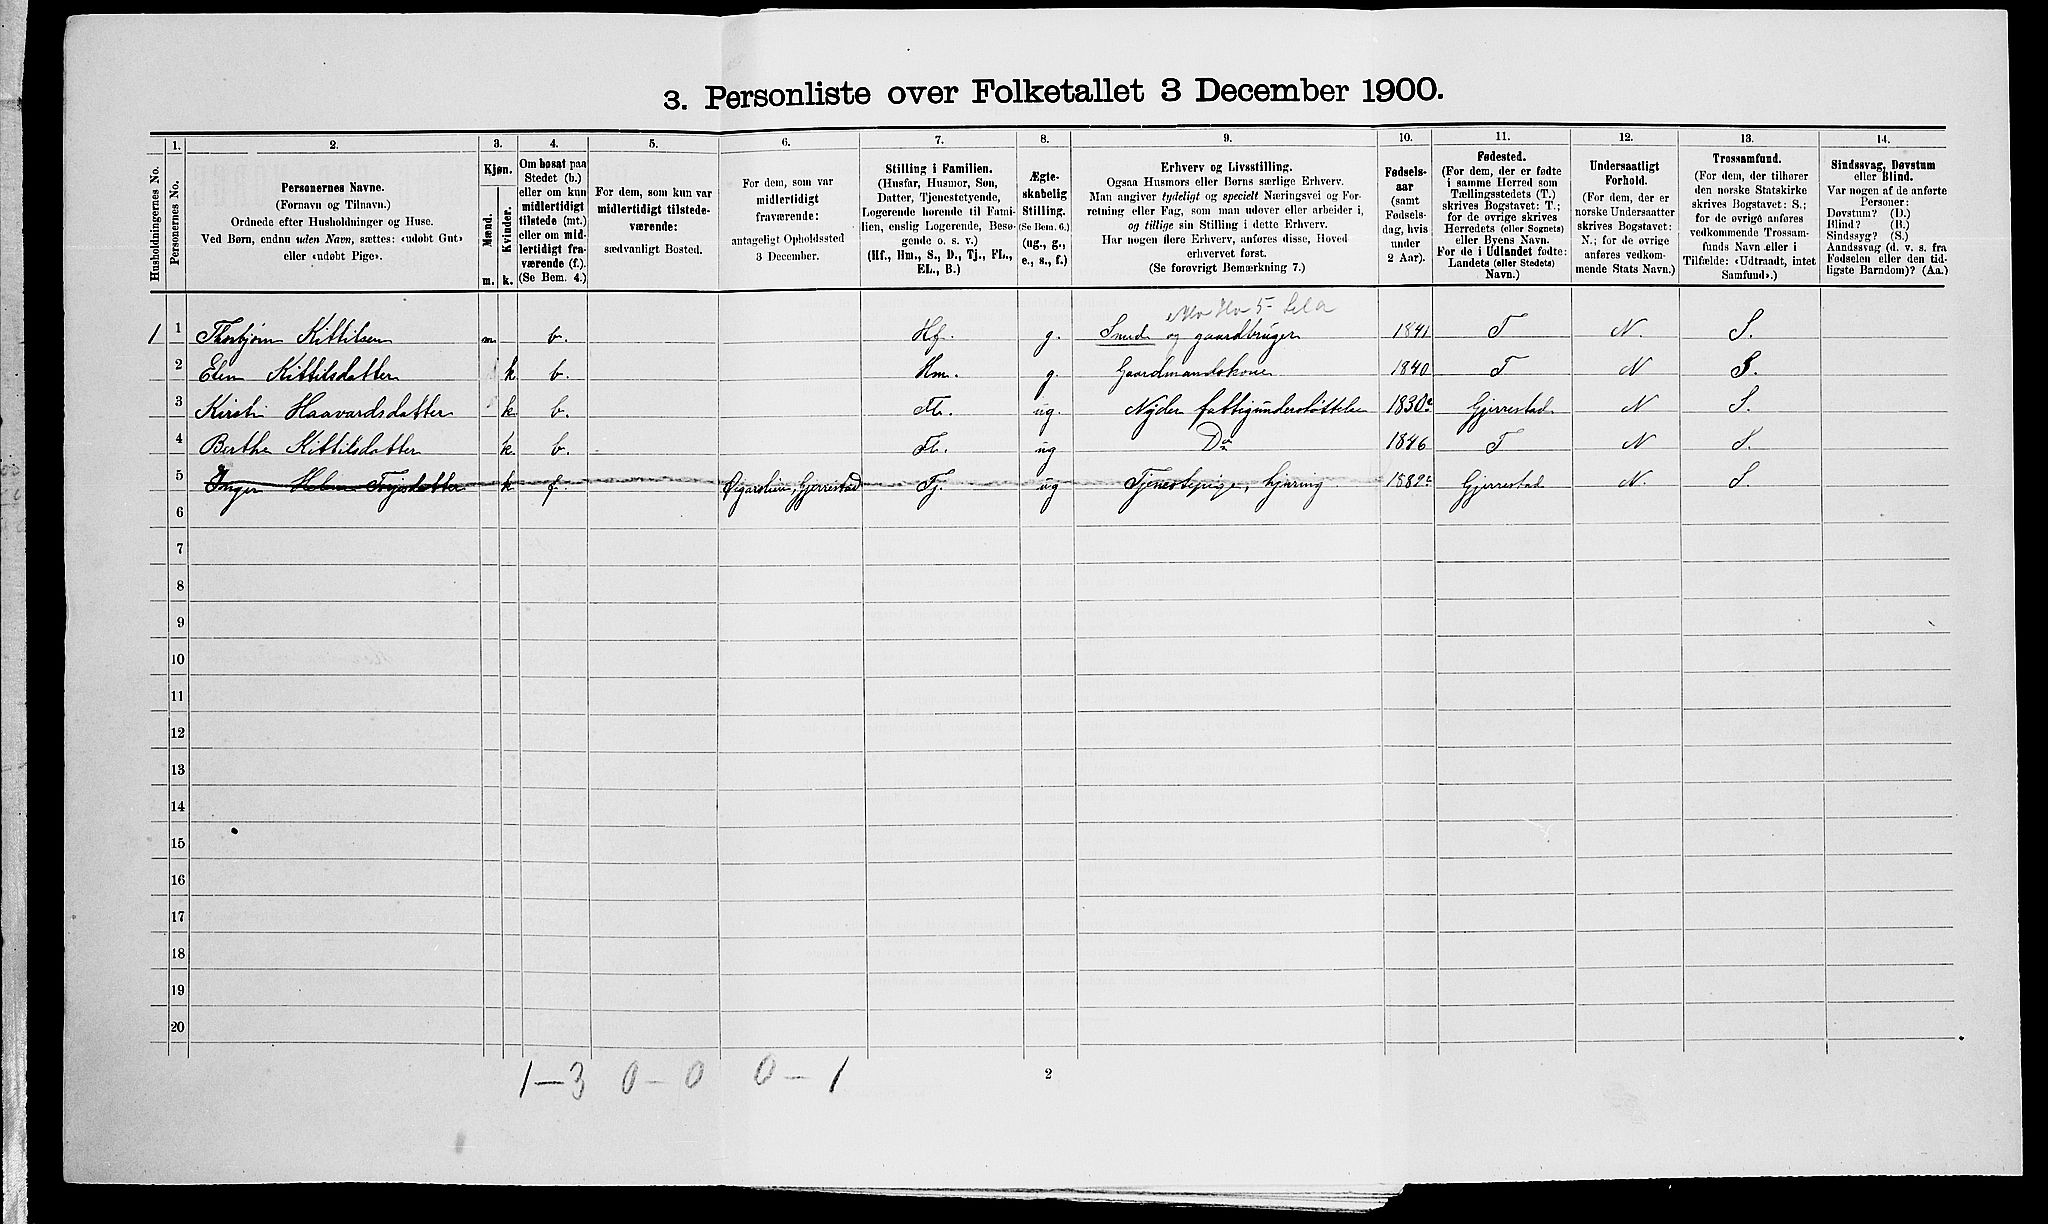 3. Personliste over Folketallet 3 December 1900.
Husholdningernes No.
1.
Personernes No.
2.
Personernes Navne.
(Fornavn og Tilnavn.)
Ordnede efter Husholdninger og Huse.
Ved Børn, endnu uden Navn, sættes: «udøbt Gut»
eller «udøbt Pige».
3.
Kjøn.
Mænd.
Kvinder.
m.
k.
4.
Om bosat paa
Stedet (b.)
eller om kun
midlertidigt
tilstede (mt.)
eller om mid-
lertidigt fra-
værende (f.).
(Se Bem. 4.)
5.
For dem, som kun var
midlertidigt tilstede-
værende:
sædvanligt Bosted.
6.
For dem, som var
midlertidigt
fraværende:
antageligt Opholdssted
3 December.
7.
Stilling i Familien.
(Husfar, Husmor, Søn,
Datter, Tjenestetyende,
Logerende hørende til Fami-
lien, enslig Logerende, Besø-
gende o. s. v.)
(Hf., Hm., S., D., Tj., FL.,
EL., B.)
8.
Ægte-
skabelig
Stilling.
(Se Bem. 6.)
(ug., g.,
e., s., f.)
9.
Erhverv og Livsstilling.
Ogsaa Husmors eller Børns særlige Erhverv.
Man angiver tydeligt og specielt Næringsvei og For-
retning eller Fag, som man udøver eller arbeider i,
og tillige sin Stilling i dette Erhverv.
Har nogen flere Erhverv, anføres disse, Hoved
erhvervet først.
(Se forøvrigt Bemærkning 7.)
10.
Fødsels-
aar
(samt
Fødsels-
dag, hvis
under
2 Aar).
11.
Fødested.
(For dem, der er fødte
i samme Herred som
Tællingsstedets (T.)
skrives Bogstavet: T.;
for de øvrige skrives
Herredets (eller Sognets)
eller Byens Navn.
For de i Udlandet fødte:
Landets (eller Stedets)
Navn.)
12.
Undersaatligt
Forhold.
(For dem, der er
norske Undersaatter
skrives Bogstavet:
N.; for de øvrige
anføres vedkom-
mende Stats Navn.)
13.
Trossamfund.
(For dem, der tilhører
den norske Statskirke
skrives Bogstavet: S.;
for de øvrige anføres
vedkommende Trossam-
funds Navn eller i
Tilfælde: «Udtraadt, intet
Samfund».)
14.
Sindssvag, Døvstum
eller Blind.
Var nogen af de anførte
Personer:
Døvstum? (D.)
Blind? (B.)
Sindssyg? (S.)
Aandssvag (d. v. s. fra
Fødselen eller den tid-
ligste Barndom)? (Aa.)
1 1 Thorbjørn Kittilsen m. b. Hf. g. Smed og gaardbruger 1841 T N. S.
2 Elen Kittilsdatter k b. Hm. g. Gaardmandskone 1840 T N S.
3 Kirsti Haavardsdatter k b. Fl. ug. Nyder fattigunderstøttelse 1830 Gjerrestad N S.
4 Berthe Kittilsdatter k b. Fl. ug Do 1846 T N S.
5 Inger Helene Terjesdatter k f. Gjerrestad Tj. ug Tjenestepige, 1882 Gjerrestad N. S
6
7
8
9
10
11
12
13
14
15
16
17
18
19
20
1—3 0—0 0—1
2